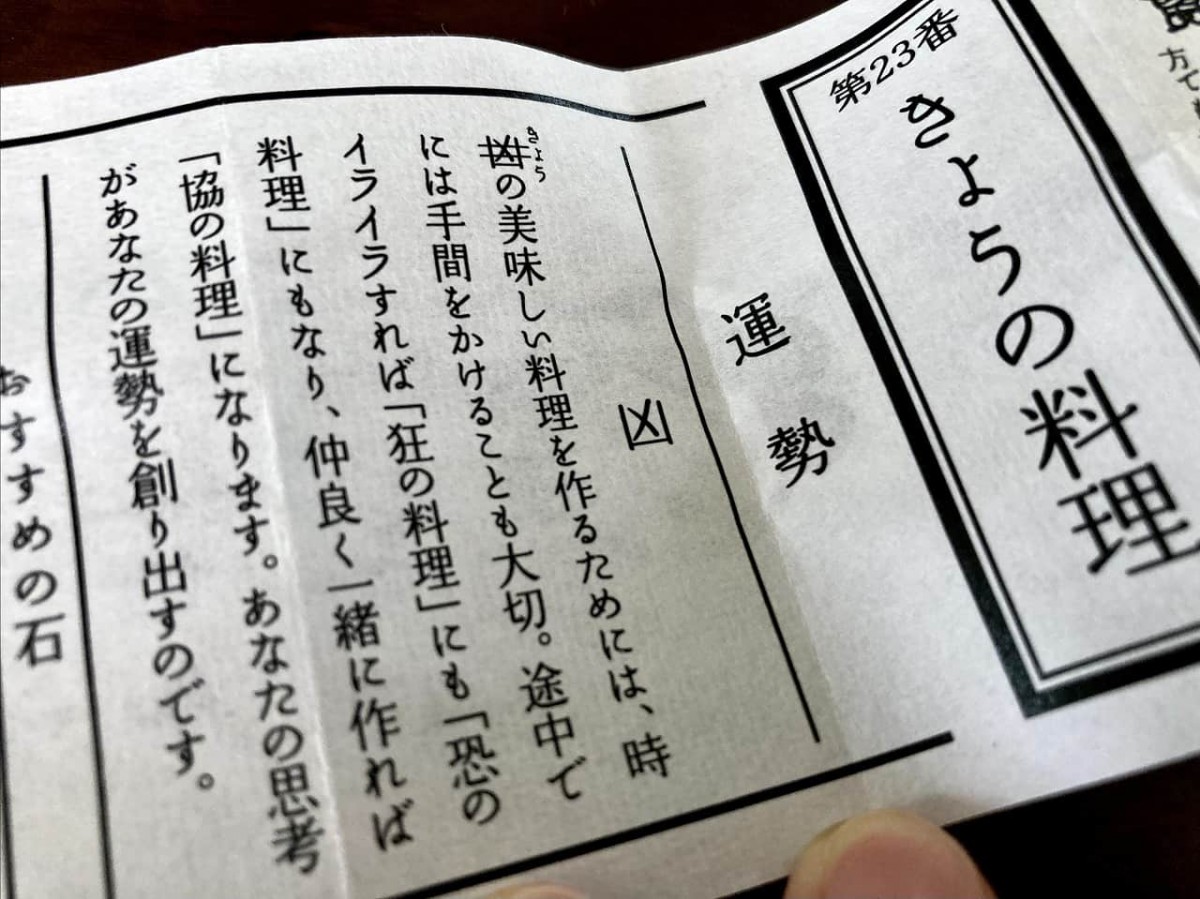 第23番
きょうの料理
運勢
凶
きょう
の美味しい料理を作るためには、時
には手間をかけることも大切。途中で
イライラすれば「狂の料理」にも「恐の
料理」にもなり、仲良く一緒に作れば
「協の料理」になります。あなたの思考
があなたの運勢を創り出すのです。
おすすめの石